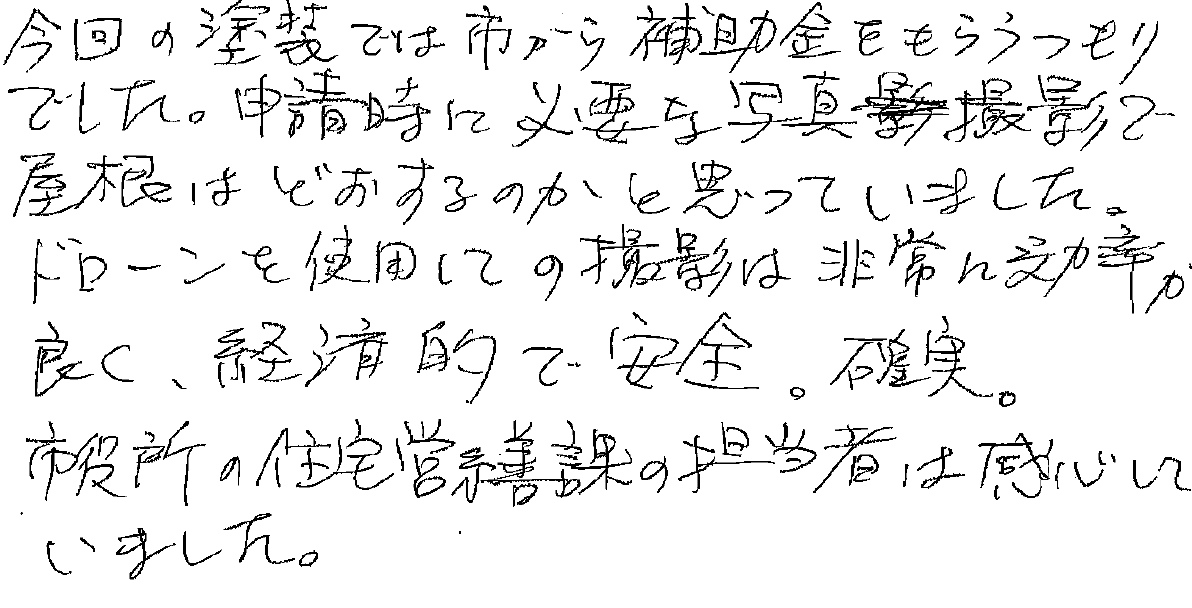 今回の塗装では市から補助金をもらうつもり
でした。申請時に必要な写真撮影で
屋根はどおするのかと思っていました。
ドローンを使用しての撮影は非常に効率が
良く、経済的で安全。確実。
市役所の住宅営繕課の担当者は感心して
いました。